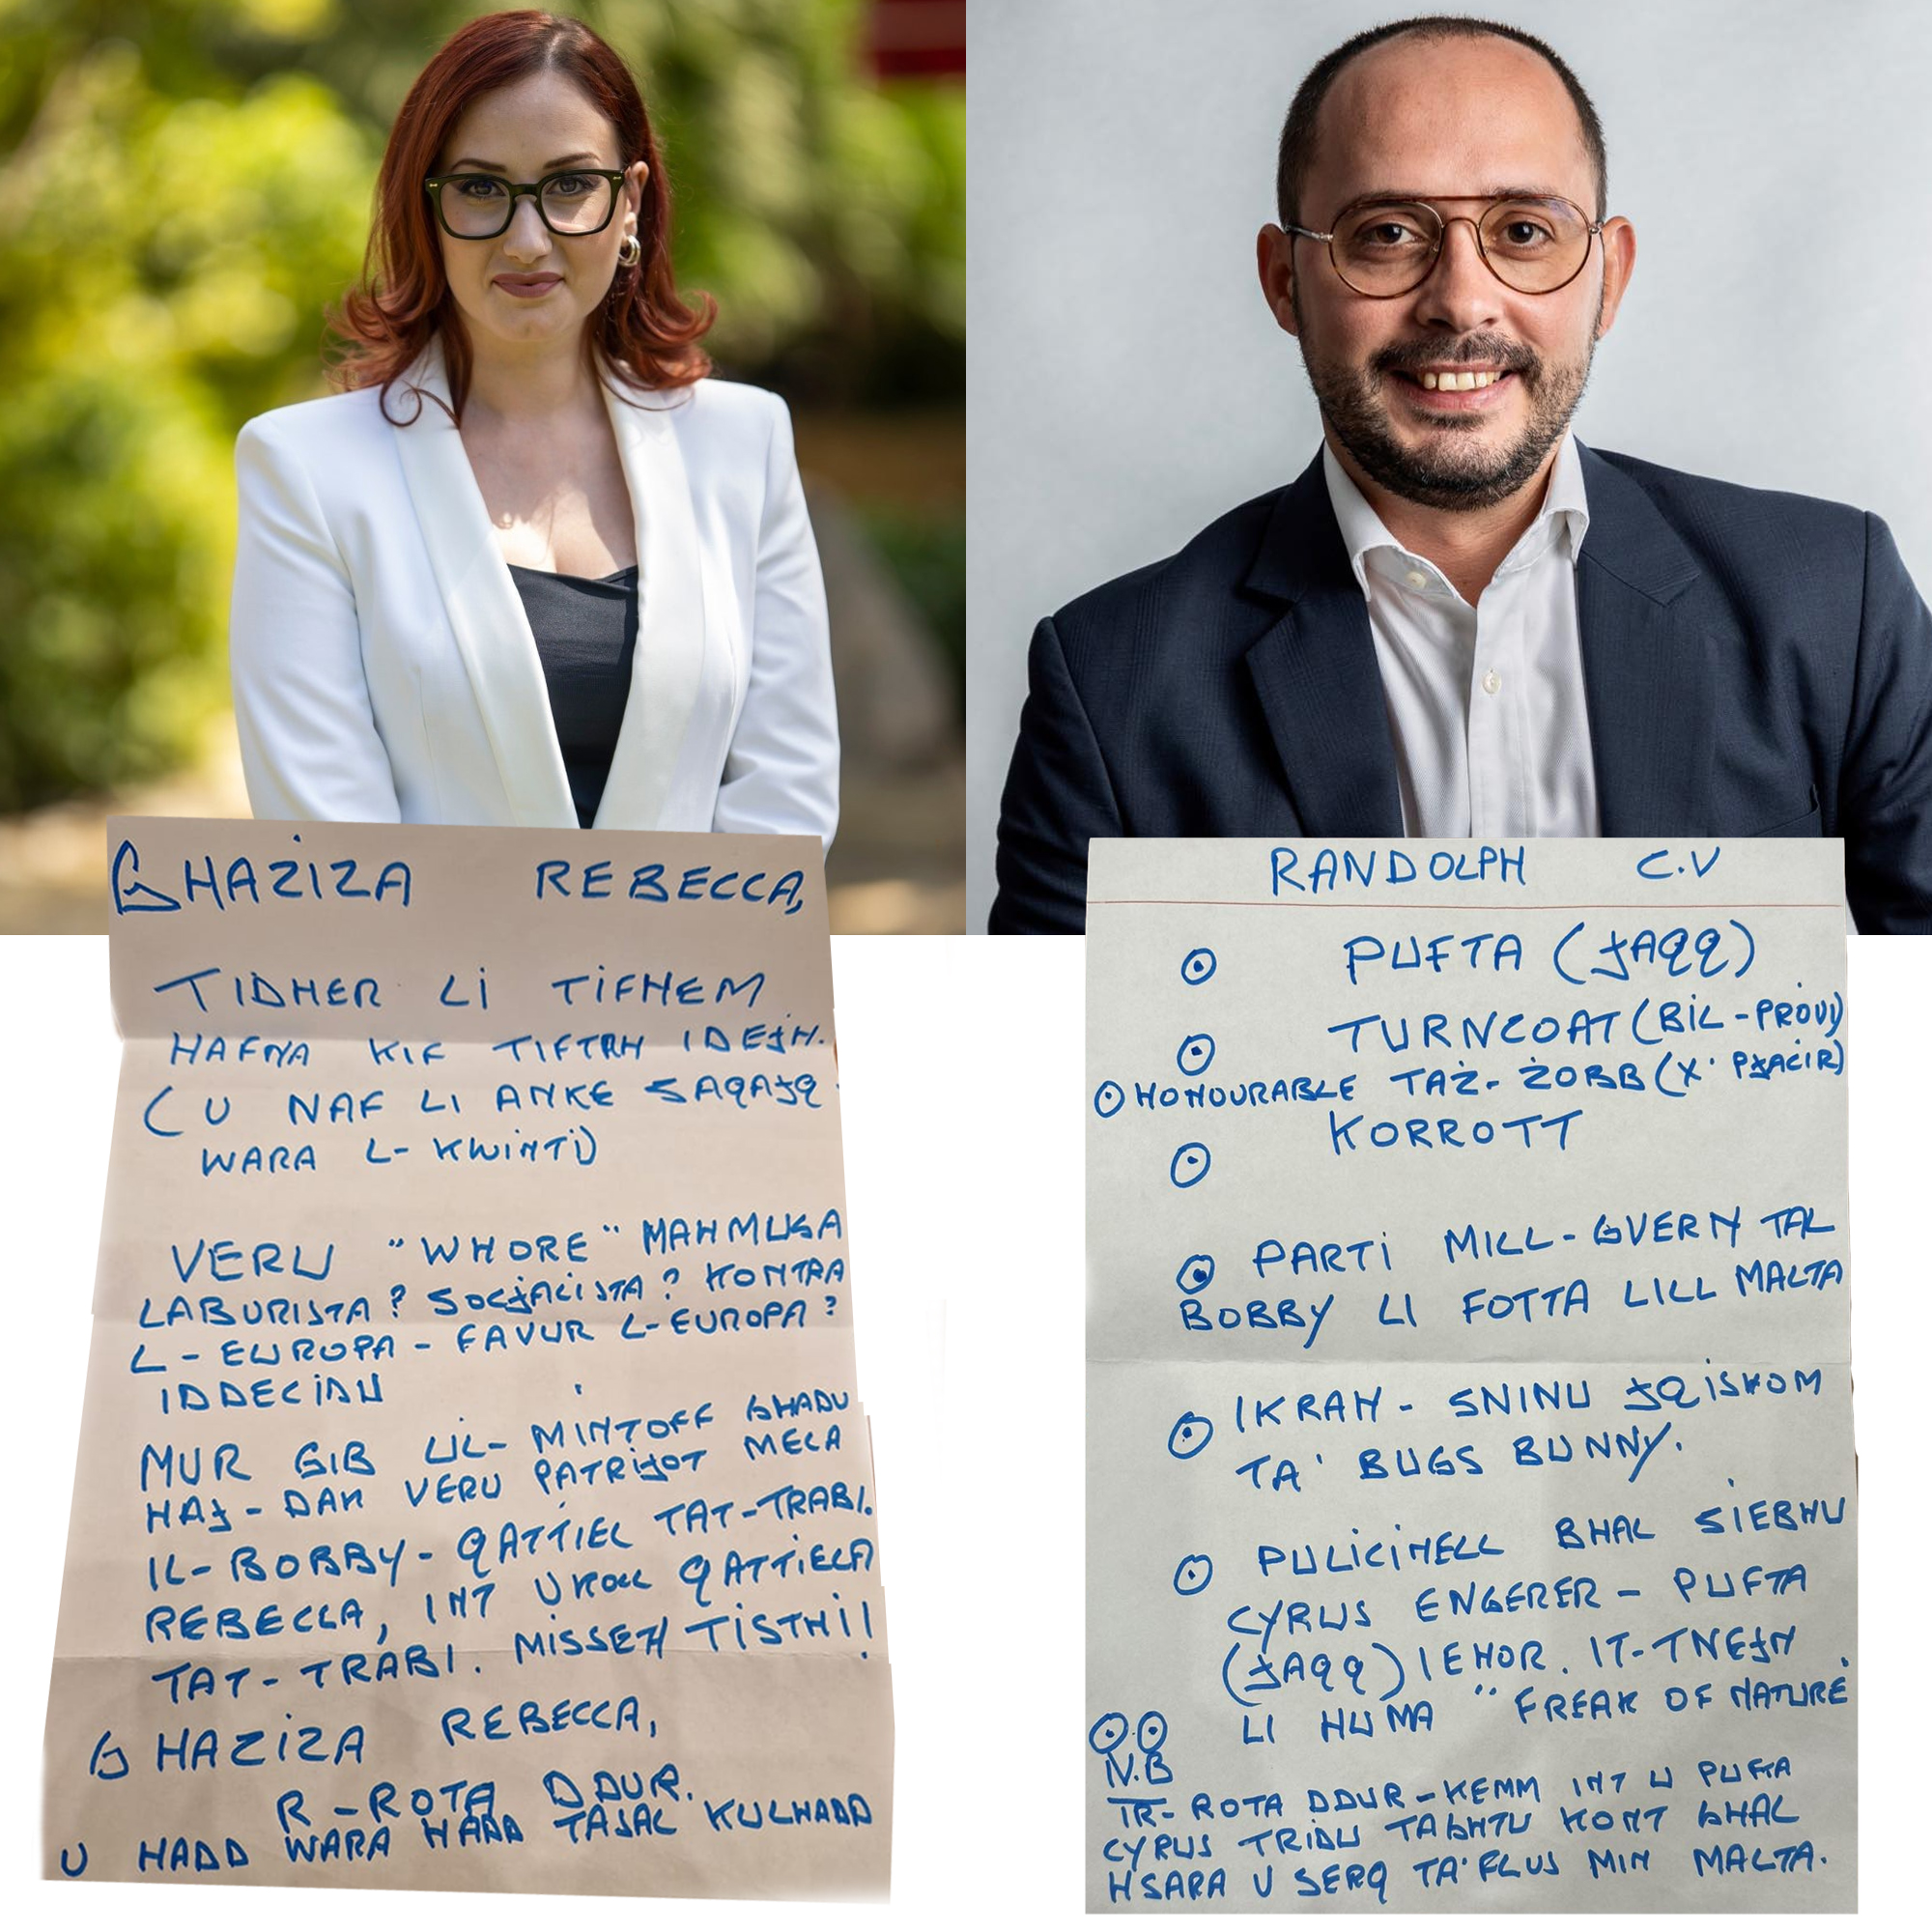 GHAZIZA REBECCA,
TIDHER LI TIFHEM
HAFNA KIF TIFTAH IDEJH.
(U NAF LI ANKE SAQAJQ
WARA L-KWINTI)
VERU "WHORE" MAHMUGA
LABURISTA? SOCJACISTA? KONTRA
L-EUROPA - FAVUR L-EUROPA?
IDDECIDU
MUR GIB LIL-MINTOFF GHADU
HAJ - DAK VERU PATRIJOT MELA
IL-BOBBY - QATTIEL TAT-TRABI.
REBECCA, INT UKOLL QATTIELA
TAT-TRABI. MISSEK TISTHI!
GHAZIZA REBECCA,
R-ROTA DDUR.
U HADD WARA HADD TASAL KULHADD
RANDOLPH C.V
PUFTA (JAQQ)
TURNCOAT (BIL-PROVI)
HONOURABLE TAŻ-ŻOBB (X'PJACIR)
KORROTT
PARTI MILL-GVERN TAL
BOBBY LI FOTTA LILL MALTA
IKRAH - SNINU JQISHOM
TA' BUGS BUNNY.
PULICINELL BHAL SIEBHU
CYRUS ENGERER - PUFTA
(JAQQ) IEHOR. IT-TNEJN
LI HUMA "FREAK OF NATURE
N.B
IR-ROTA DDUR - KEMM INT U PUFTA
CYRUS TRIDU TAGHTU KONT GHAL
HSARA U SERQ TA' FLUS MIN MALTA.